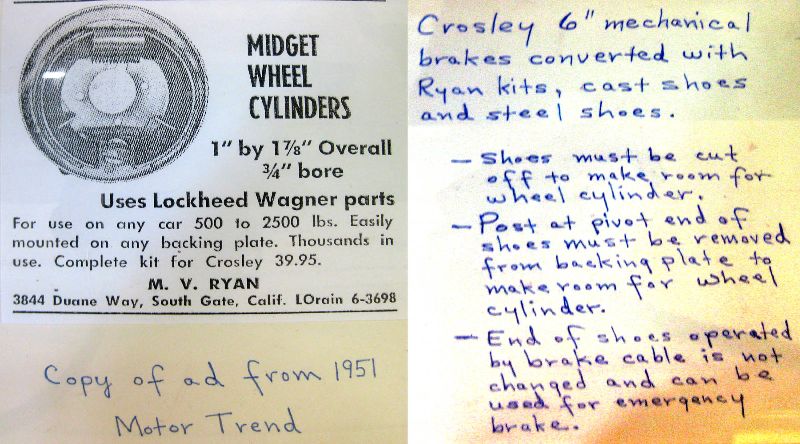 MIDGET
WHEEL
CYLINDERS
1" by 1⅞" Overall
¾" bore
Uses Lockheed Wagner parts
For use on any car 500 to 2500 lbs. Easily
mounted on any backing plate. Thousands in
use. Complete kit for Crosley 39.95.
M. V. RYAN
3844 Duane Way, South Gate, Calif. LOrain 6-3698
Copy of ad from 1951
Motor Trend
Crosley 6" mechanical
brakes converted with
Ryan kits, cast shoes
and steel shoes.
- Shoes must be cut
off to make room for
wheel cylinder.
- Post at pivot end of
shoes must be removed
from backing plate to
make room for wheel
cylinder.
- End of shoes operated
by brake cable is not
changed and can be
used for emergency
brake.